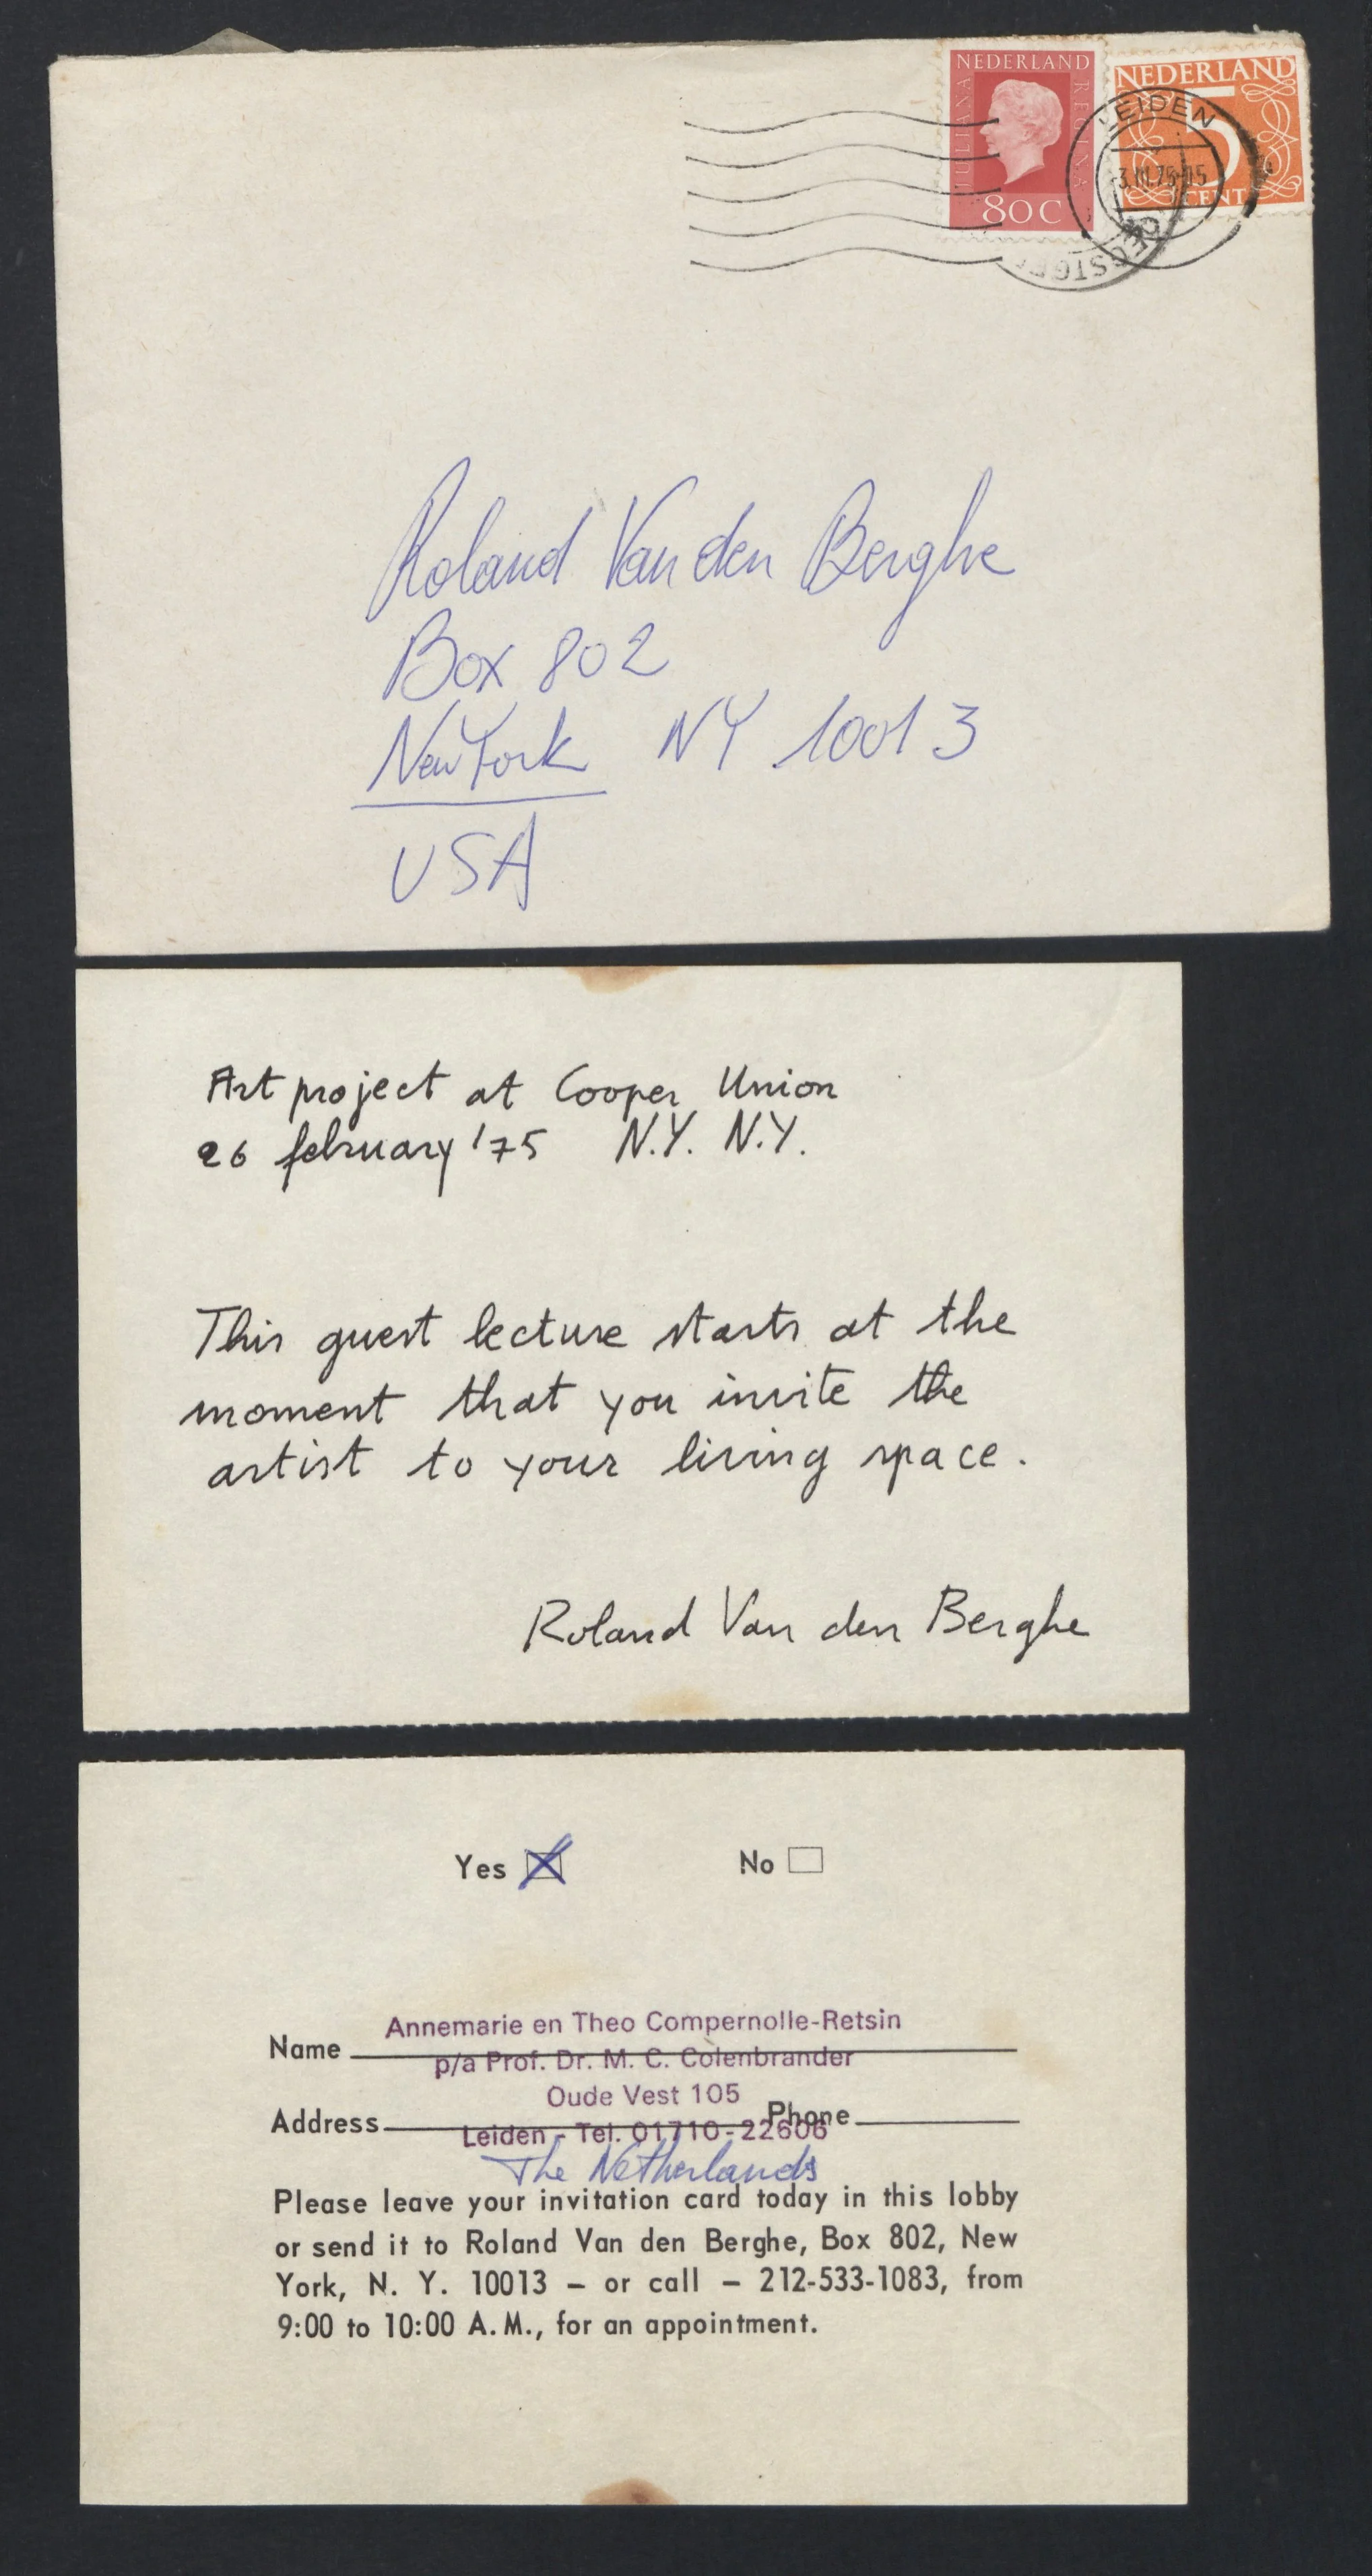 NEDERLAND
JULIANA REGINA
80 C
NEDERLAND
5
CENT
LEIDEN
Roland Van den Berghe
Box 802
New York NY 10013
USA
Art project at Cooper Union
26 february '75 N.Y. N.Y.
This guest lecture starts at the
moment that you invite the
artist to your living space.
Roland Van den Berghe
Yes No
Annemarie en Theo Compernolle-Retsin
Name
p/a Prof. Dr. M. C. Colenbrander
Oude Vest 105
Address Phone
Leiden - Tel. 01710-22606
The Netherlands
Please leave your invitation card today in this lobby
or send it to Roland Van den Berghe, Box 802, New
York, N. Y. 10013 – or call – 212-533-1083, from
9:00 to 10:00 A.M., for an appointment.